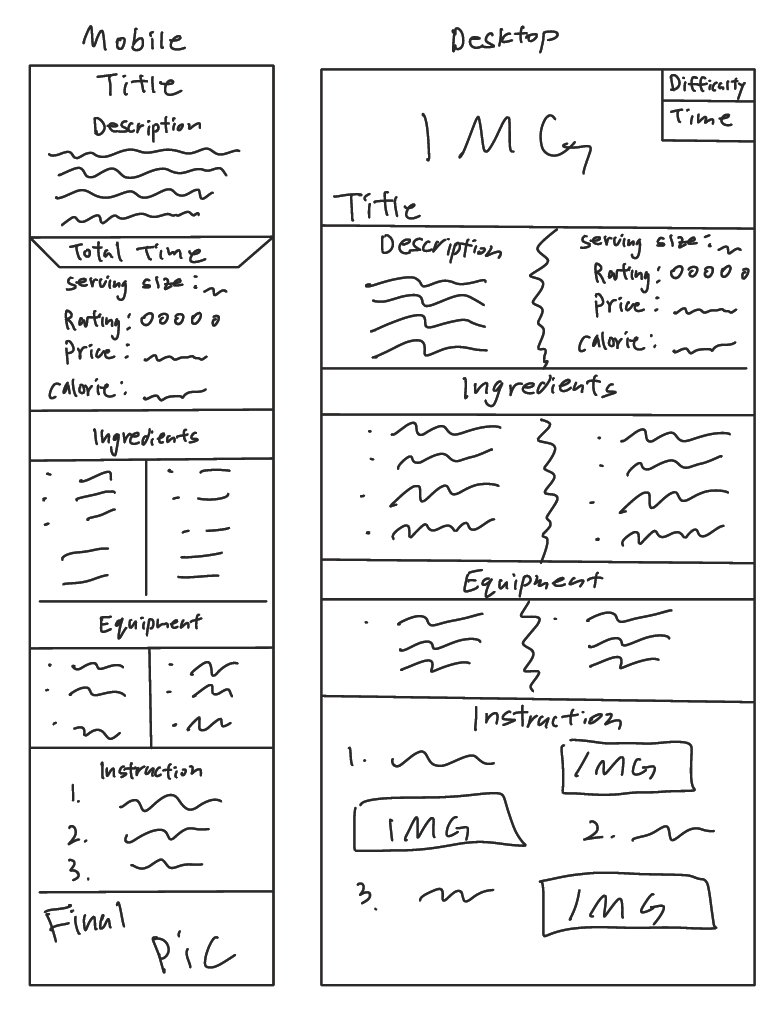 Mobile
Title
Description
Total Time
serving size:
Rarting: 0000 0
Price:
Calorie:
Ingredients
Equipment
Instruction
1.
2.
3.
Final
Pic
Desktop
IMG
Difficulty
Time
Title
Description
serving size:
Rarting: 0000 0
Price:
Calorie:
Ingredients
Equipment
Instruction
1.
IMG
IMG
2.
3.
IMG